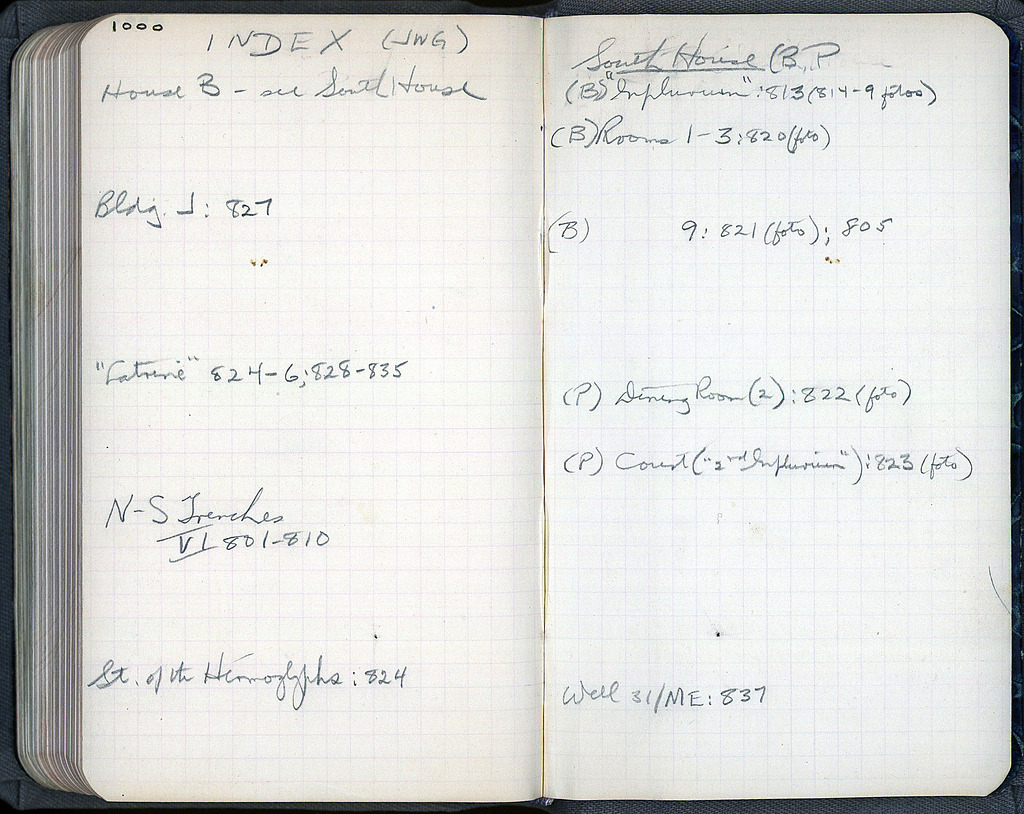 1000
INDEX (JWG)
House B - see South House
Bldg. J: 827
"Latrine" 824-6; 828-835
N-S Trenches
VI 801-810
St. of the Hermoglyphs: 824
South House (B, P
(B) "Impluvium": 813 (814-9 fotos)
(B) Rooms 1-3: 820 (foto)
(B) 9: 821 (foto); 805
(P) Dining Room (2): 822 (foto)
(P) Court ("2nd Impluvium"): 823 (foto)
Well 31/ME: 837